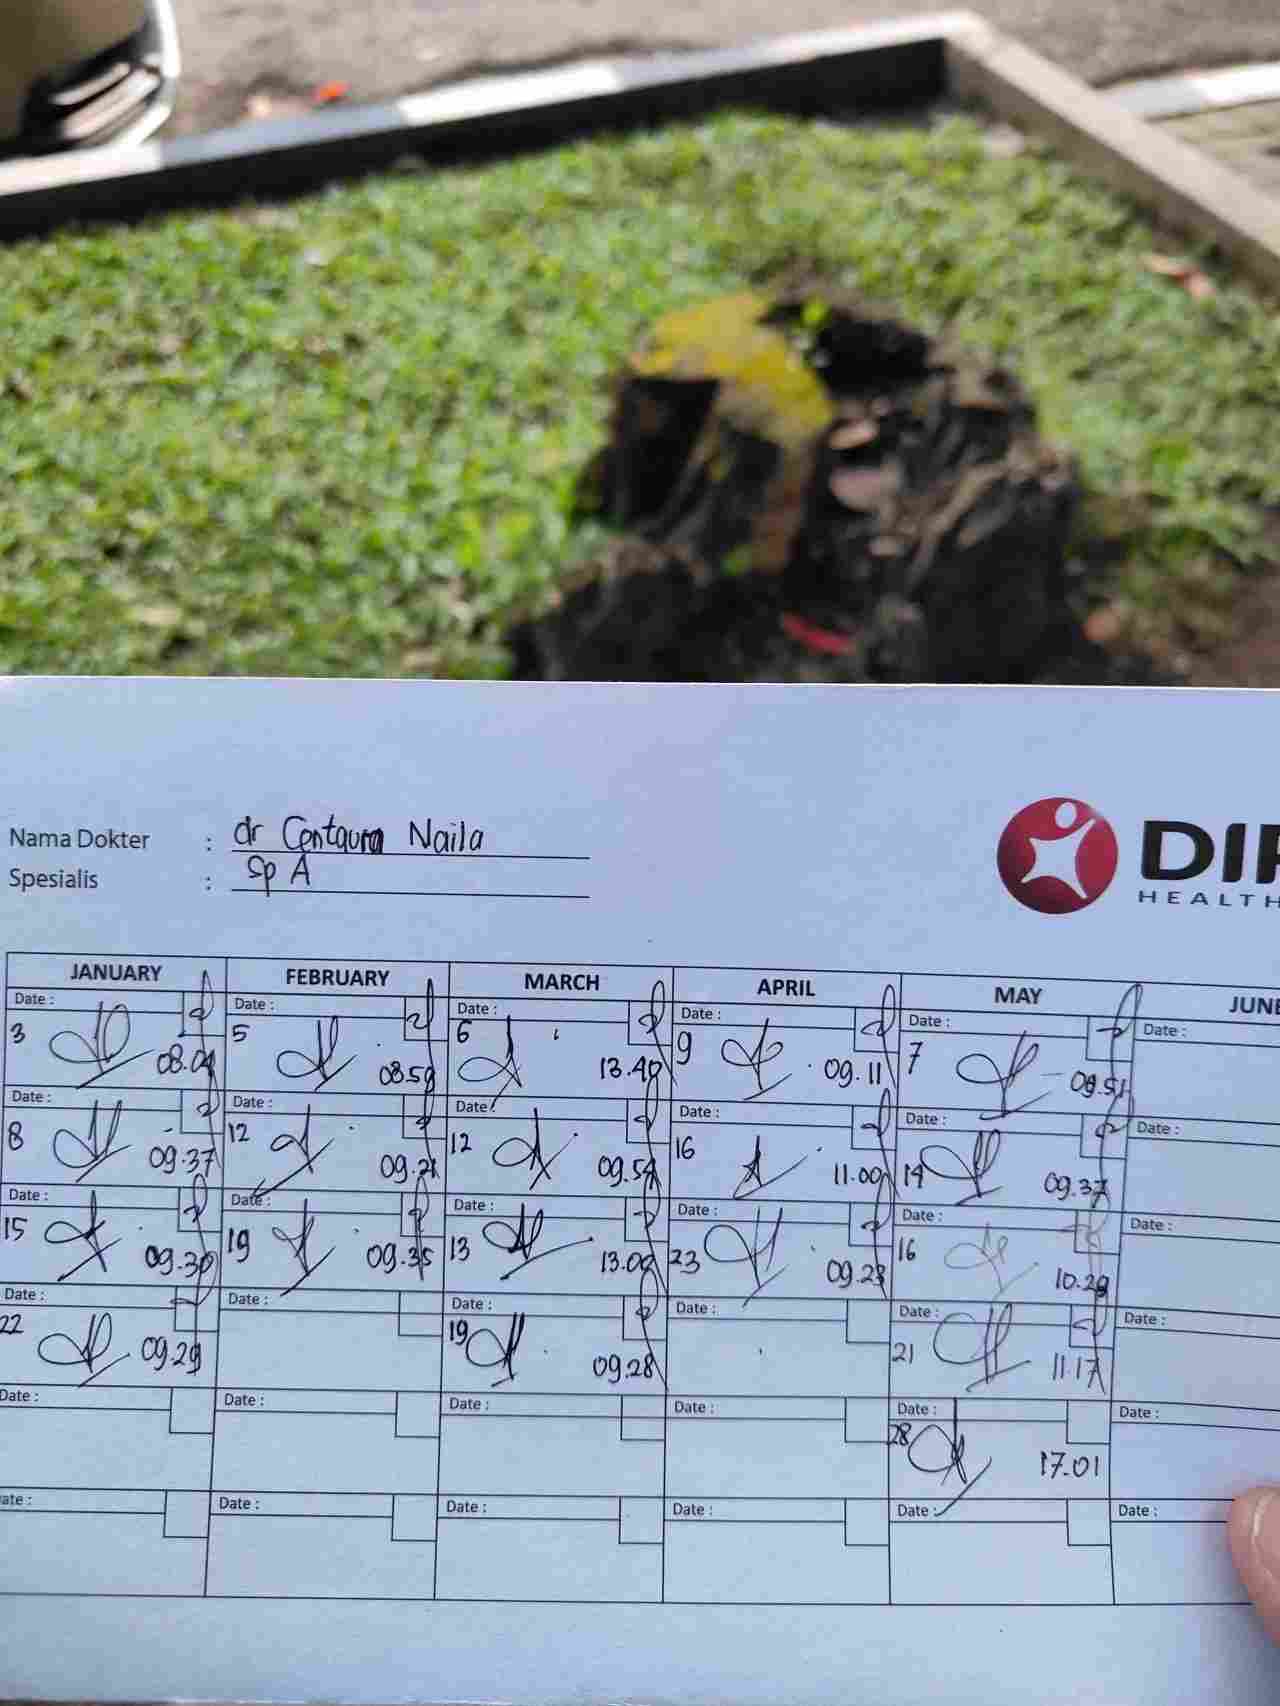 Nama Dokter : dr Centaura Naila
Spesialis : Sp A
HEALTH
JANUARY FEBRUARY MARCH APRIL MAY JUNE
Date : Date : Date : Date : Date : Date :
3 08.04 5 08.59 6 13.40 9 09.11 7 09.51
Date : Date : Date : Date : Date : Date :
8 09.37 12 09.21 12 09.54 16 11.00 14 09.37
Date : Date : Date : Date : Date : Date :
15 09.30 19 09.35 13 13.09 23 09.23 16 10.29
Date : Date : Date : Date : Date : Date :
22 09.29 19 09.28 21 11.17
Date : Date : Date : Date : Date : Date :
28 17.01
ate : Date : Date : Date : Date : Date :